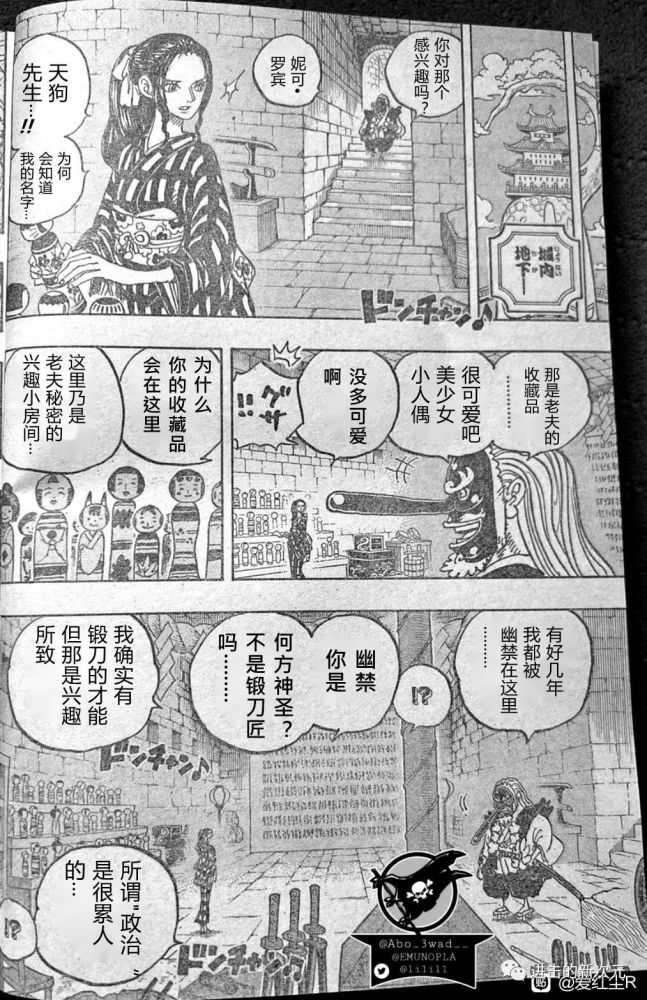 城内
地下
你对那个
感兴趣吗?
妮可·
罗宾
天狗
先生…!!
为何
会知道
我的名字…
ドンチャン♪
那是老夫的
收藏品
………
很可爱吧
美少女
小人偶
没多可爱
啊
为什么
你的收藏品
会在这里
这里乃是
老夫秘密的
兴趣小房间…
有好几年
我都被
幽禁在这里
………
!?
幽禁
你是
何方神圣?
不是锻刀匠
吗………
我确实有
锻刀的才能
但那是兴趣
所致
ドンチャン♪
所谓"政治"
是很累人
的…
!?
ドンチャン♪
@Abo_3wad__
@EMUNOPLA
@lilill
进击的新次元
@爱红尘R